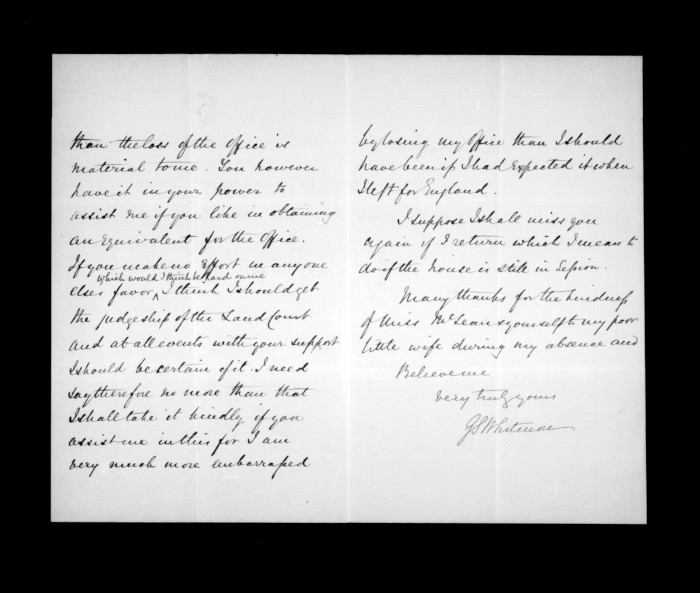 than the loss of the Office is
material to me. You however
have it in your power to
assist me if you like in obtaining
an equivalent for the Office.
If you make no effort in anyone
which would I think be hard on me
elses favor, I think I should get
the judgeship of the Land Court
and at all events with your support
I should be certain of it. I need
say therefore no more than that
I shall take it kindly if you
assist me in this for I am
very much more embarrassed
by losing my Office than I should
have been if I had expected it when
I left for England.
I suppose I shall miss you
again if I return which I mean to
do if the house is still in Session.
Many thanks for the kindness
of Miss McLean & yourself to my poor
little wife during my absence and
Believe me
very truly yours
GSWhitmore